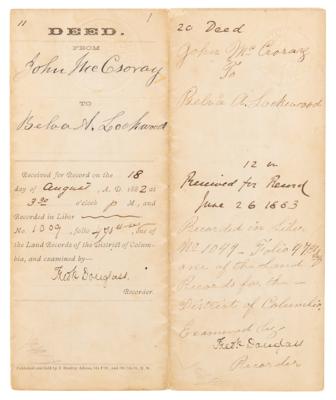 11
DEED.
FROM
John McCsoray
TO
Belva A. Lockwood
Received for Record on the 18
day of August, A. D. 1882 at
3:30 o'clock P M., and
Recorded in Liber
No. 1009, folio 471 one of
the Land Records of the District of Colum-
bia, and examined by—
Fredk Douglass.
Recorder.
20 Deed
John Mc
To
Belva A. Lockwood
12 m
Received for Record
June 26 1883
Recorded in Liber
No 1049 - Folio
one of the Land
Records for the —
District of Columbia
Examined by
Fredk Douglass
Recorder